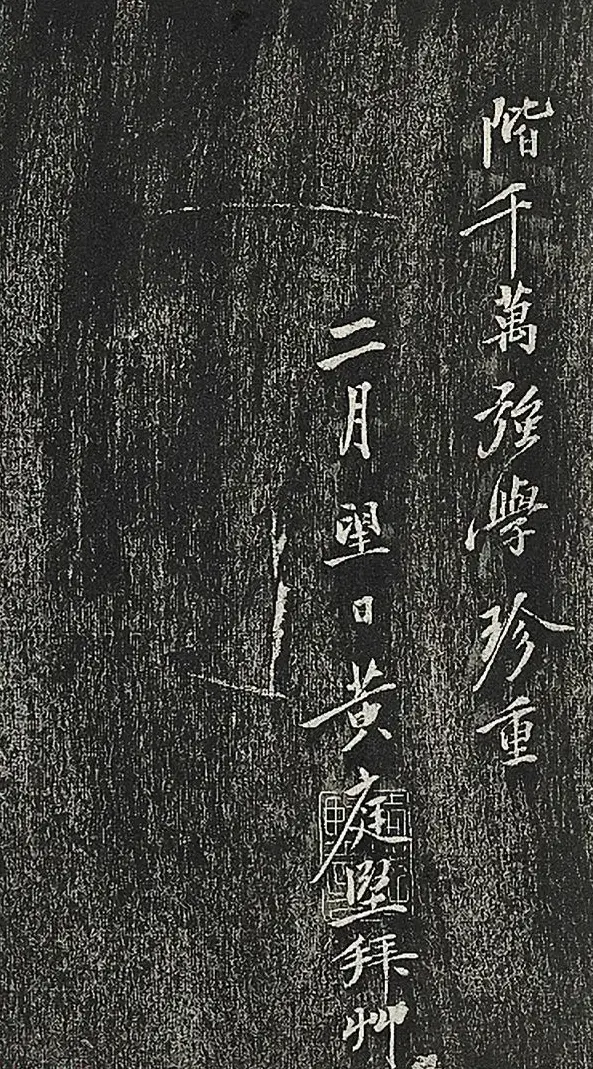 階千萬強學珍重
二月望日黃庭堅拜艸